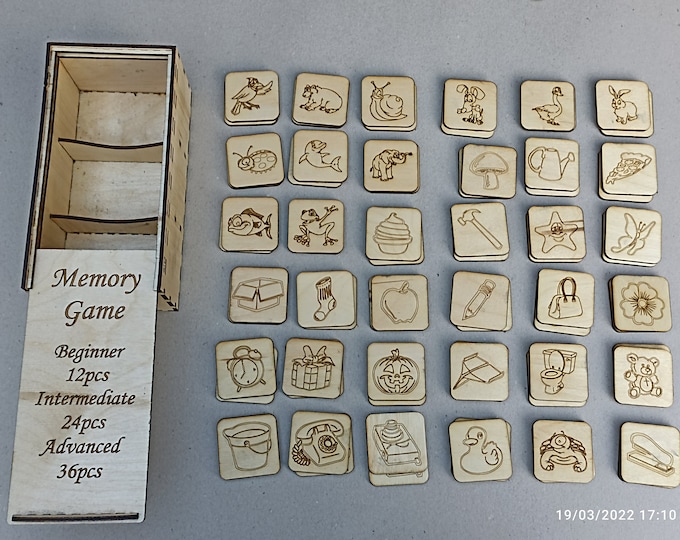 Memory
Game
Beginner
12pcs
Intermediate
24pcs
Advanced
36pcs
19/03/2022 17:10